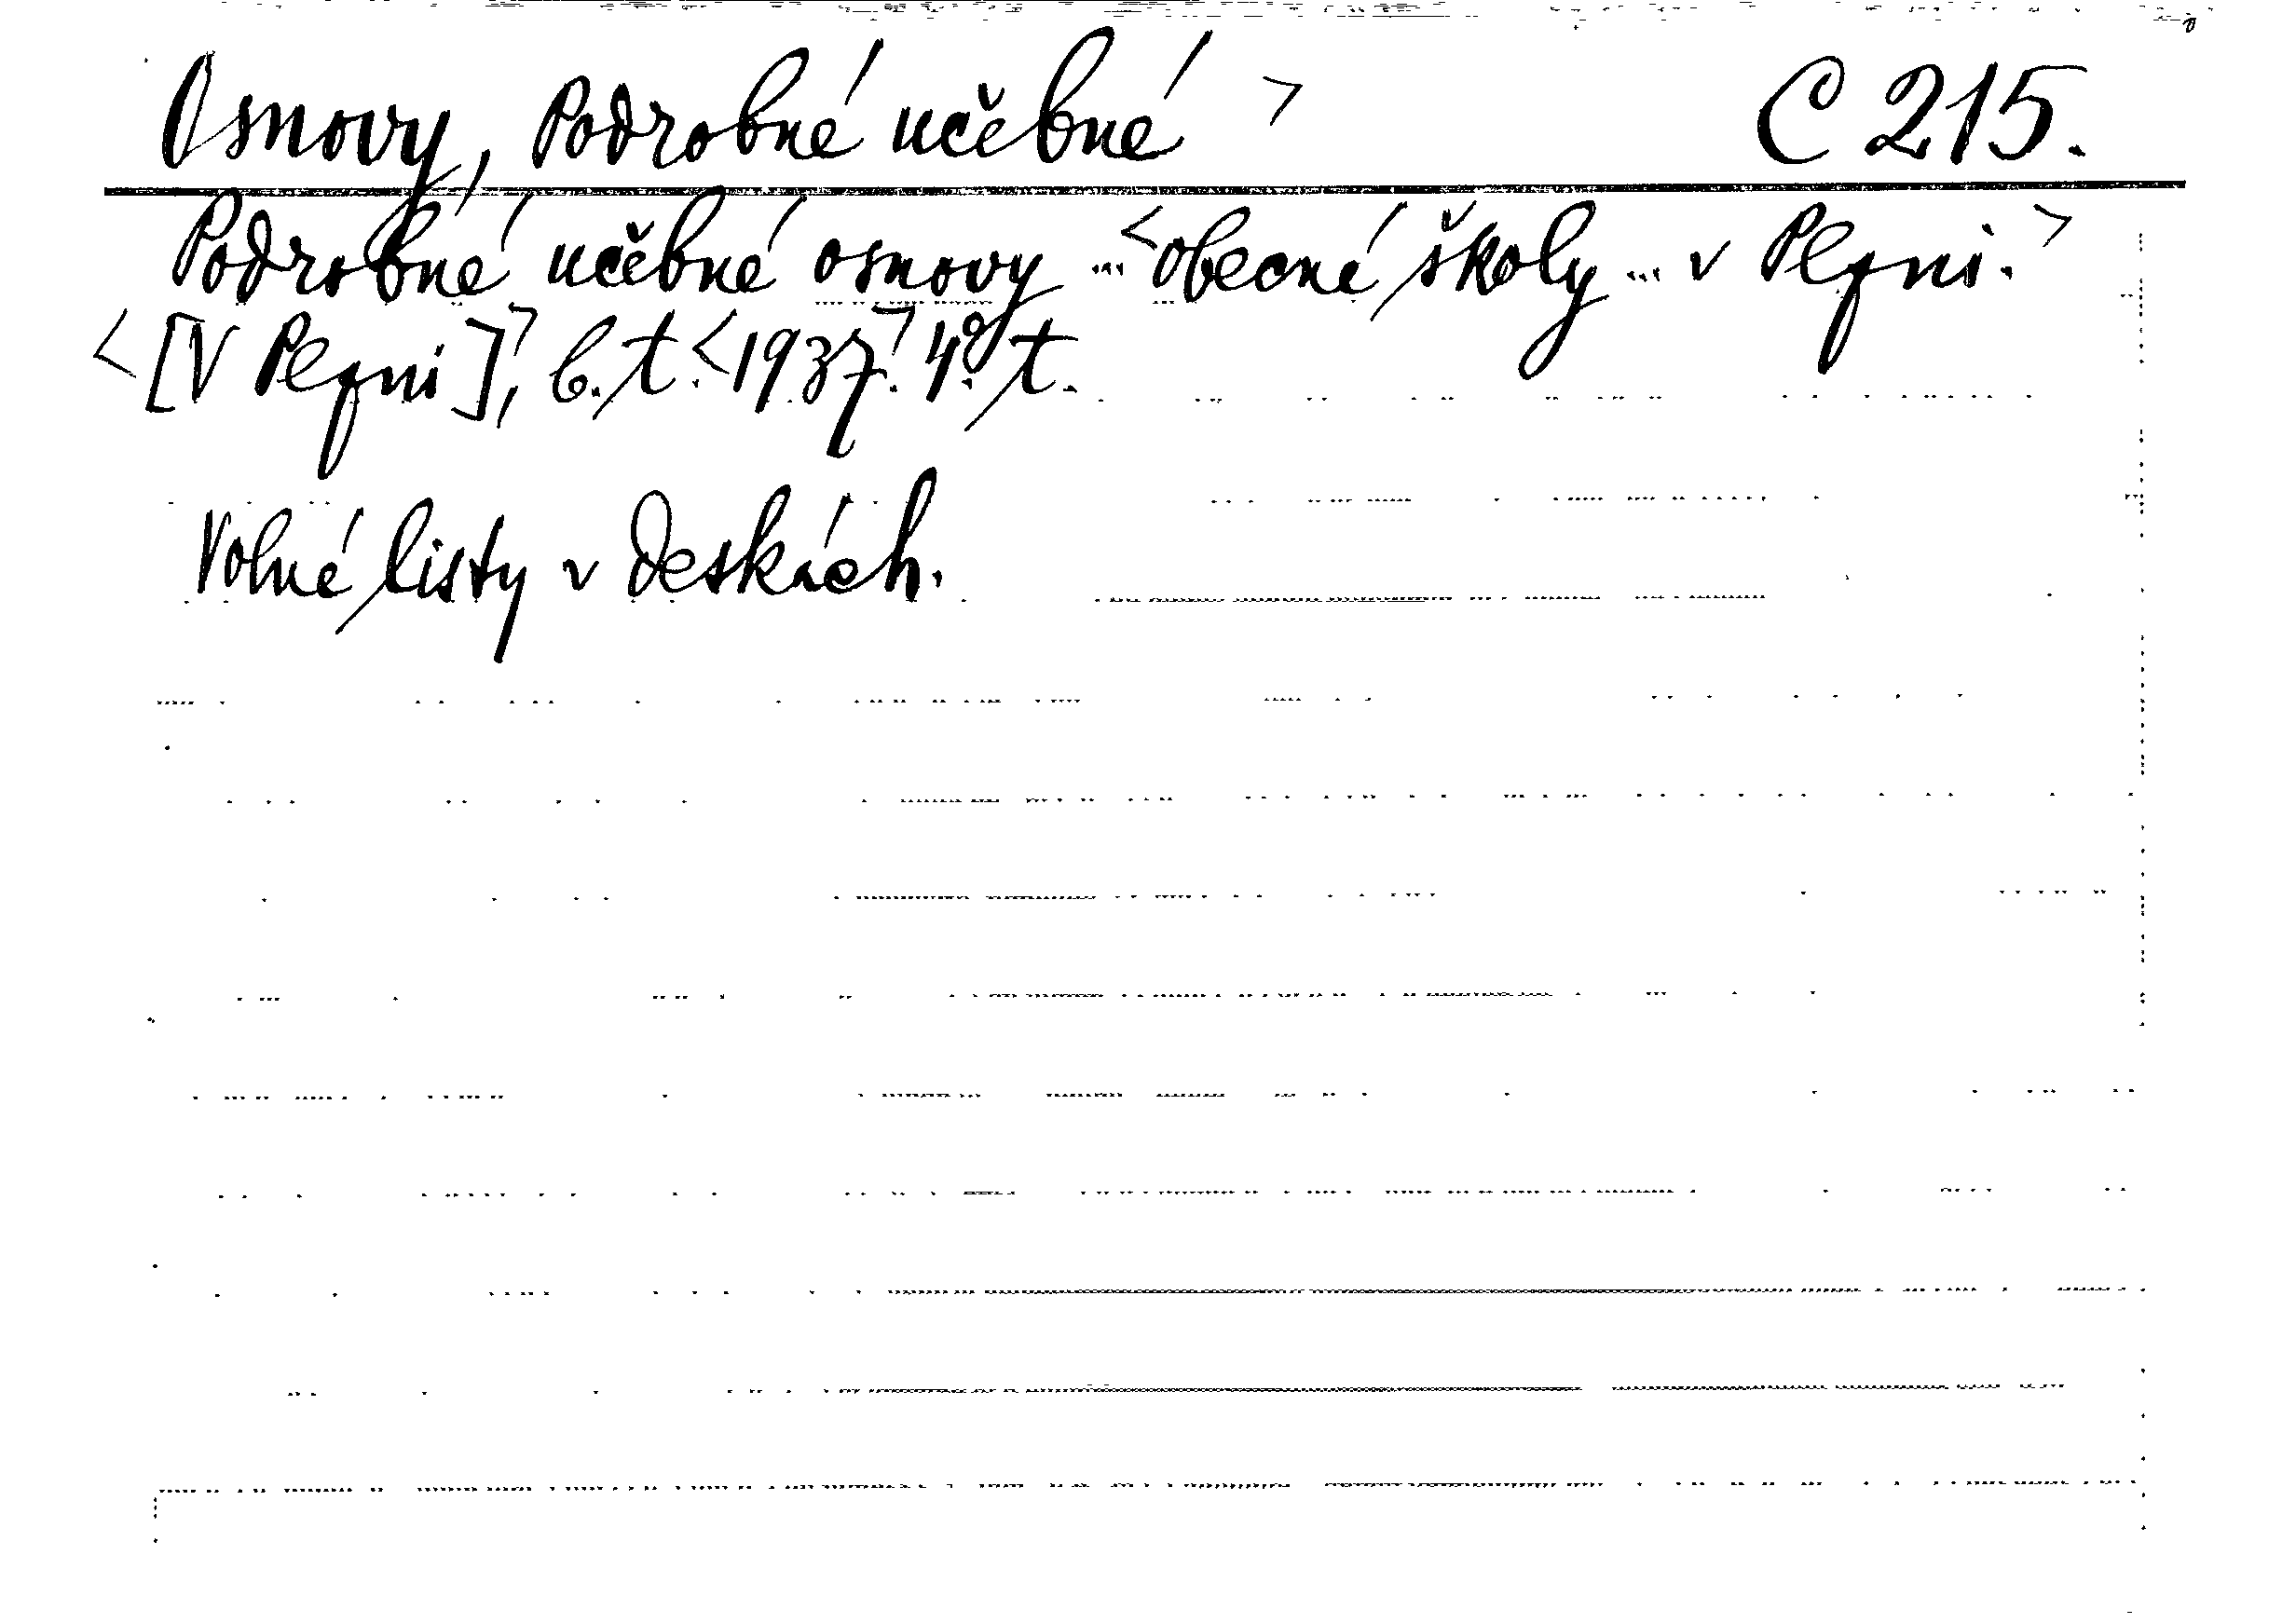 Osnovy, Podrobné učebné > C 215.
Podrobné učebné osnovy ... <obecné školy ... v Plzni.>
<[V Plzni],> b. t. <1937.> 4°. t.
Volné listy v deskách.